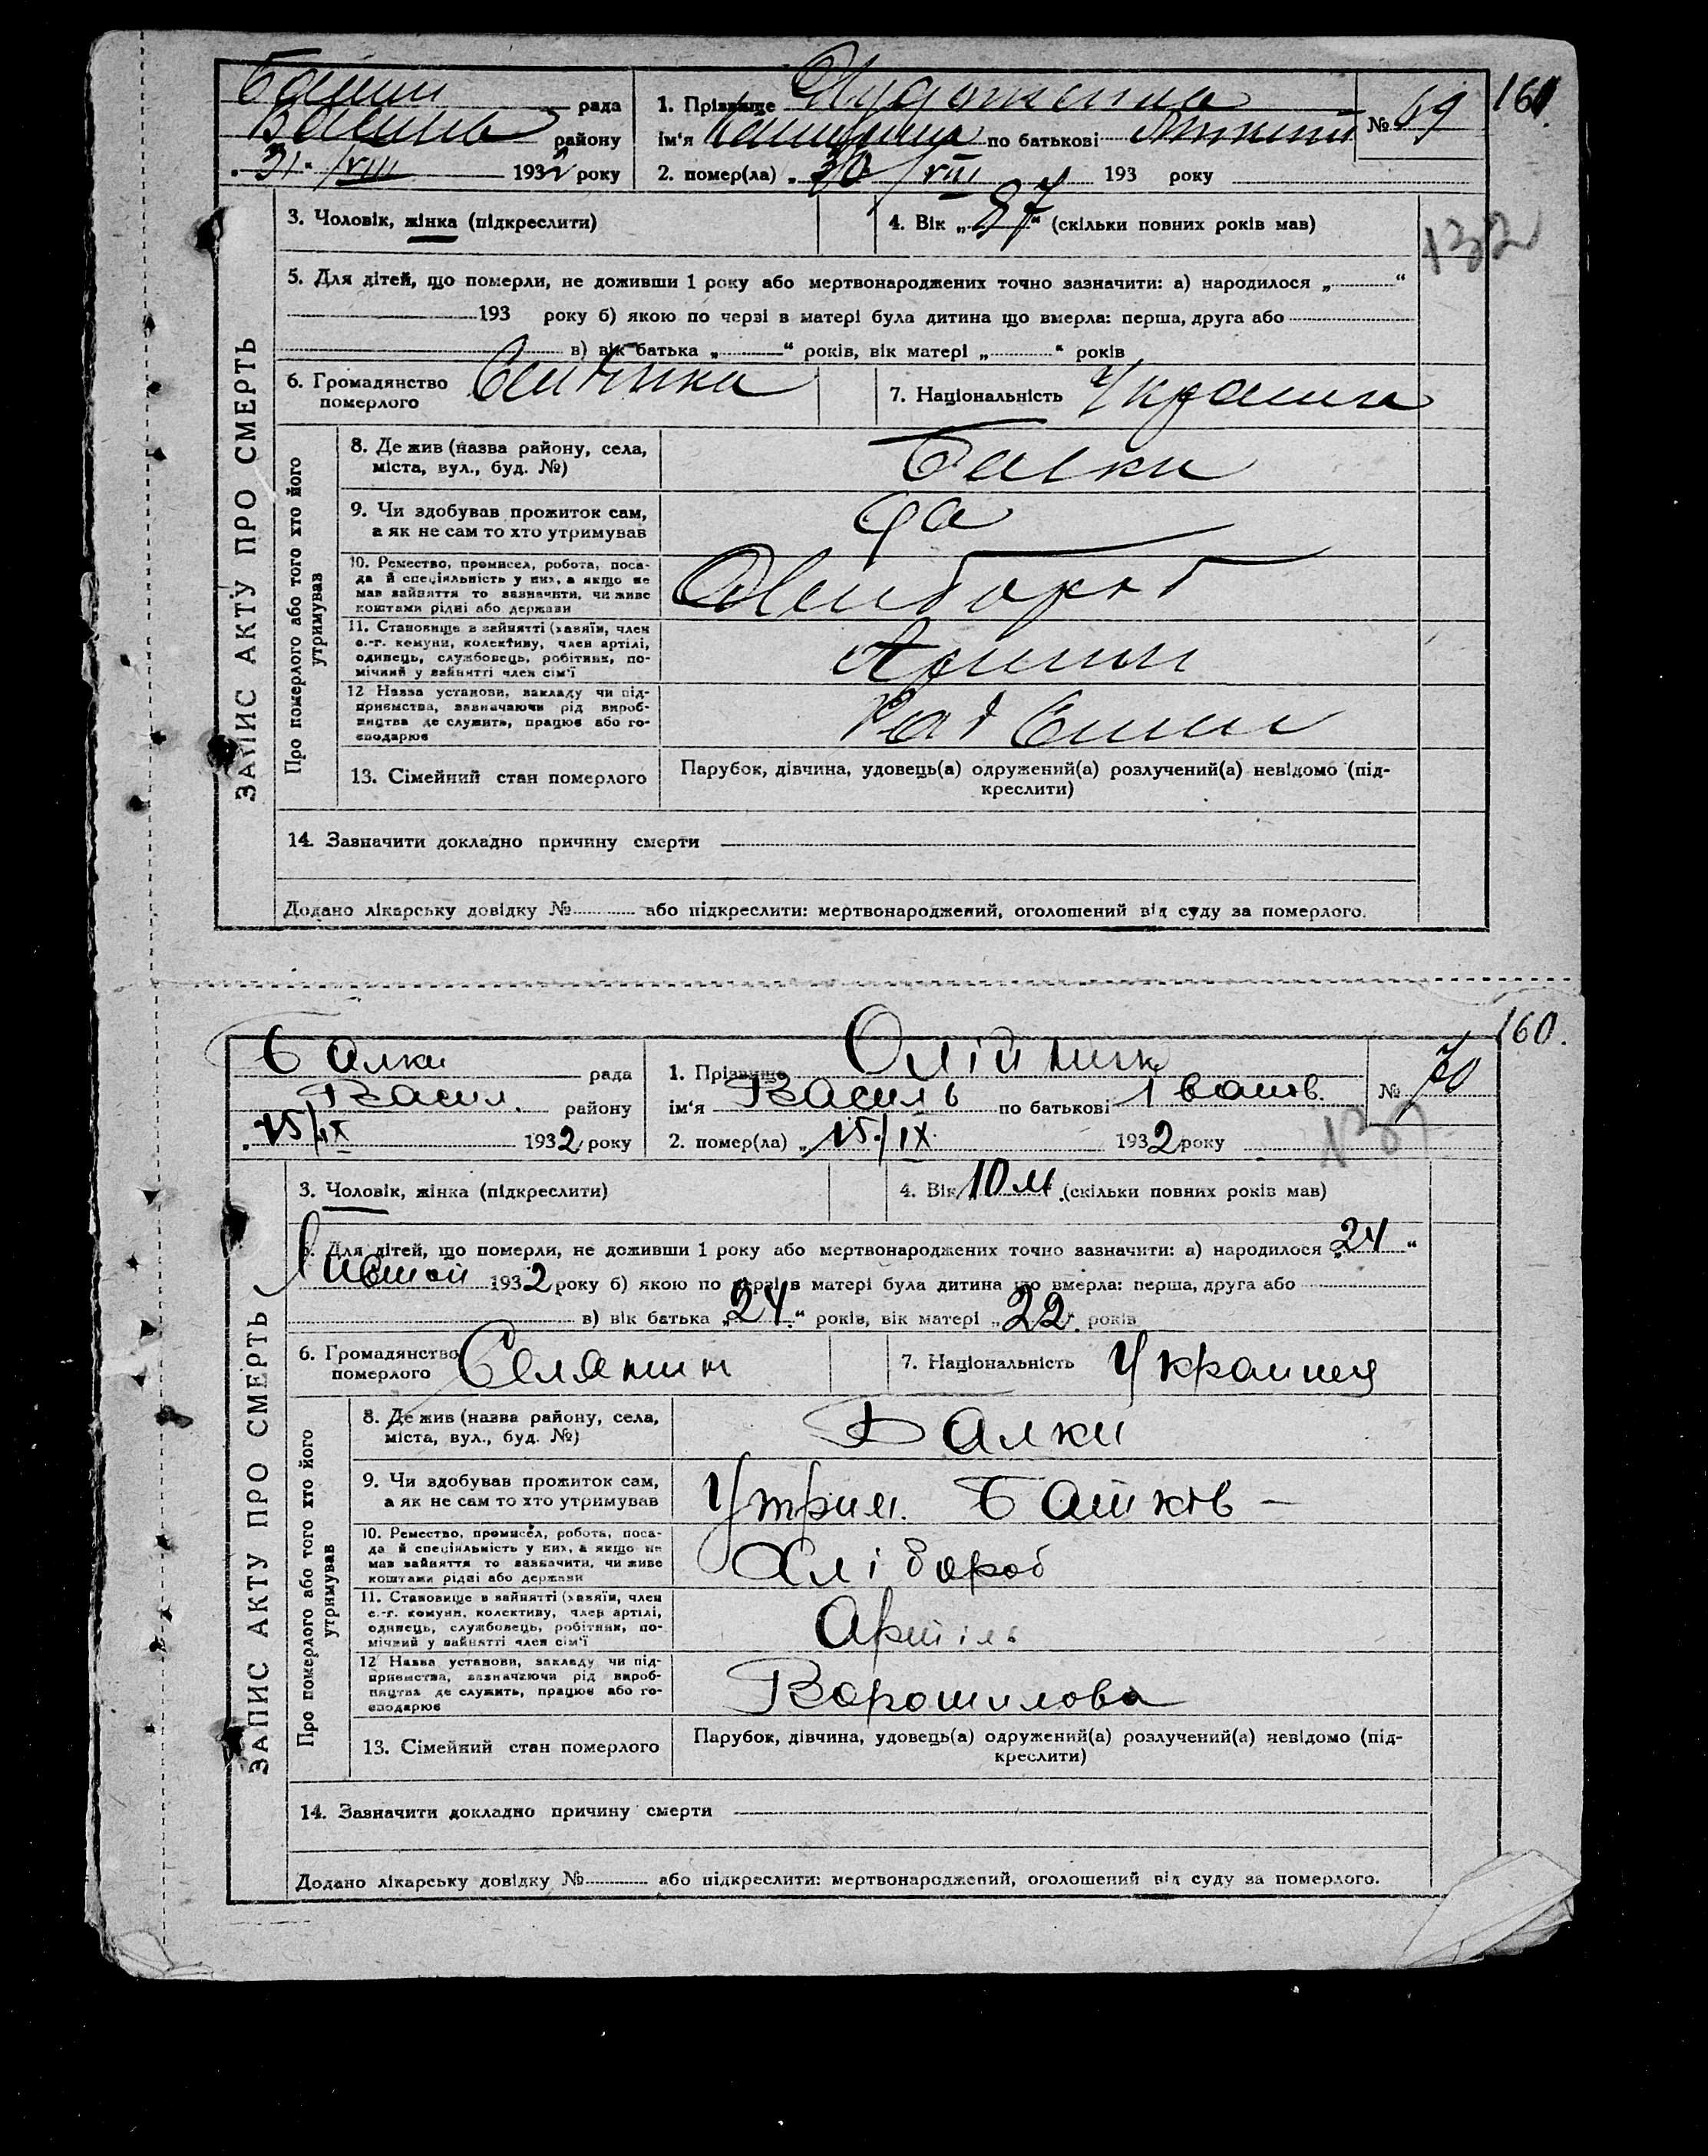 160.
рада
1. Прізвище
№ 69
району
ім'я по батькові
„31“ VIII 1932 року
2. помер(ла) „30 VIII 193 року
132
3. Чоловік, жінка (підкреслити)
4. Вік „87“ (скільки повних років мав)
5. Для дітей, що померли, не доживши 1 року або мертвонароджених точно зазначити: а) народилося „ “
193 року б) якою по черзі в матері була дитина що вмерла: перша, друга або
в) вік батька „ “ років, вік матері „ “ років
6. Громадянство
померлого
7. Національність
ЗАПИС АКТУ ПРО СМЕРТЬ
Про померлого або того хто його
утримував
8. Де жив (назва району, села,
міста, вул., буд. №)
Балки
9. Чи здобував прожиток сам,
а як не сам то хто утримував
да
10. Ремество, промисел, робота, поса-
да й спеціяльність у них, а якщо не
мав зайняття то зазначити, чи живе
коштами рідні або держави
11. Становище в зайнятті (хазяїн, член
с.-г. комуни, колективу, член артілі,
одинець, службовець, робітник, по-
мічний у зайнятті член сім'ї
12 Назва установи, закладу чи під-
приємства, зазначаючи рід вироб-
ництва де служить, працює або го-
сподарює
13. Сімейний стан померлого
Парубок, дівчина, удовець(а) одружений(а) розлучений(а) невідомо (під-
креслити)
14. Зазначити докладно причину смерти
Додано лікарську довідку № або підкреслити: мертвонароджений, оголошений від суду за померлого.
160.
Балки рада
1. Прізвище Олійник
№ 70
Васил. району
ім'я Василь по батькові Іванів.
„15/IX 1932 року
2. помер(ла) „15/IX 1932 року
3. Чоловік, жінка (підкреслити)
4. Вік „10 м. (скільки повних років мав)
5. Для дітей, що померли, не доживши 1 року або мертвонароджених точно зазначити: а) народилося „24“
1932 року б) якою по черзі в матері була дитина що вмерла: перша, друга або
в) вік батька „24.“ років, вік матері „22. років
6. Громадянство
померлого
Селянин
7. Національність Украинця
ЗАПИС АКТУ ПРО СМЕРТЬ
Про померлого або того хто його
утримував
8. Де жив (назва району, села,
міста, вул., буд. №)
Балки
9. Чи здобував прожиток сам,
а як не сам то хто утримував
Утрим. Батьків –
10. Ремество, промисел, робота, поса-
да й спеціяльність у них, а якщо не
мав зайняття то зазначити, чи живе
коштами рідні або держави
Хлібороб
11. Становище в зайнятті (хазяїн, член
с.-г. комуни, колективу, член артілі,
одинець, службовець, робітник, по-
мічний у зайнятті член сім'ї
Артіль
12 Назва установи, закладу чи під-
приємства, зазначаючи рід вироб-
ництва де служить, працює або го-
сподарює
Ворошилова
13. Сімейний стан померлого
Парубок, дівчина, удовець(а) одружений(а) розлучений(а) невідомо (під-
креслити)
14. Зазначити докладно причину смерти
Додано лікарську довідку № або підкреслити: мертвонароджений, оголошений від суду за померлого.